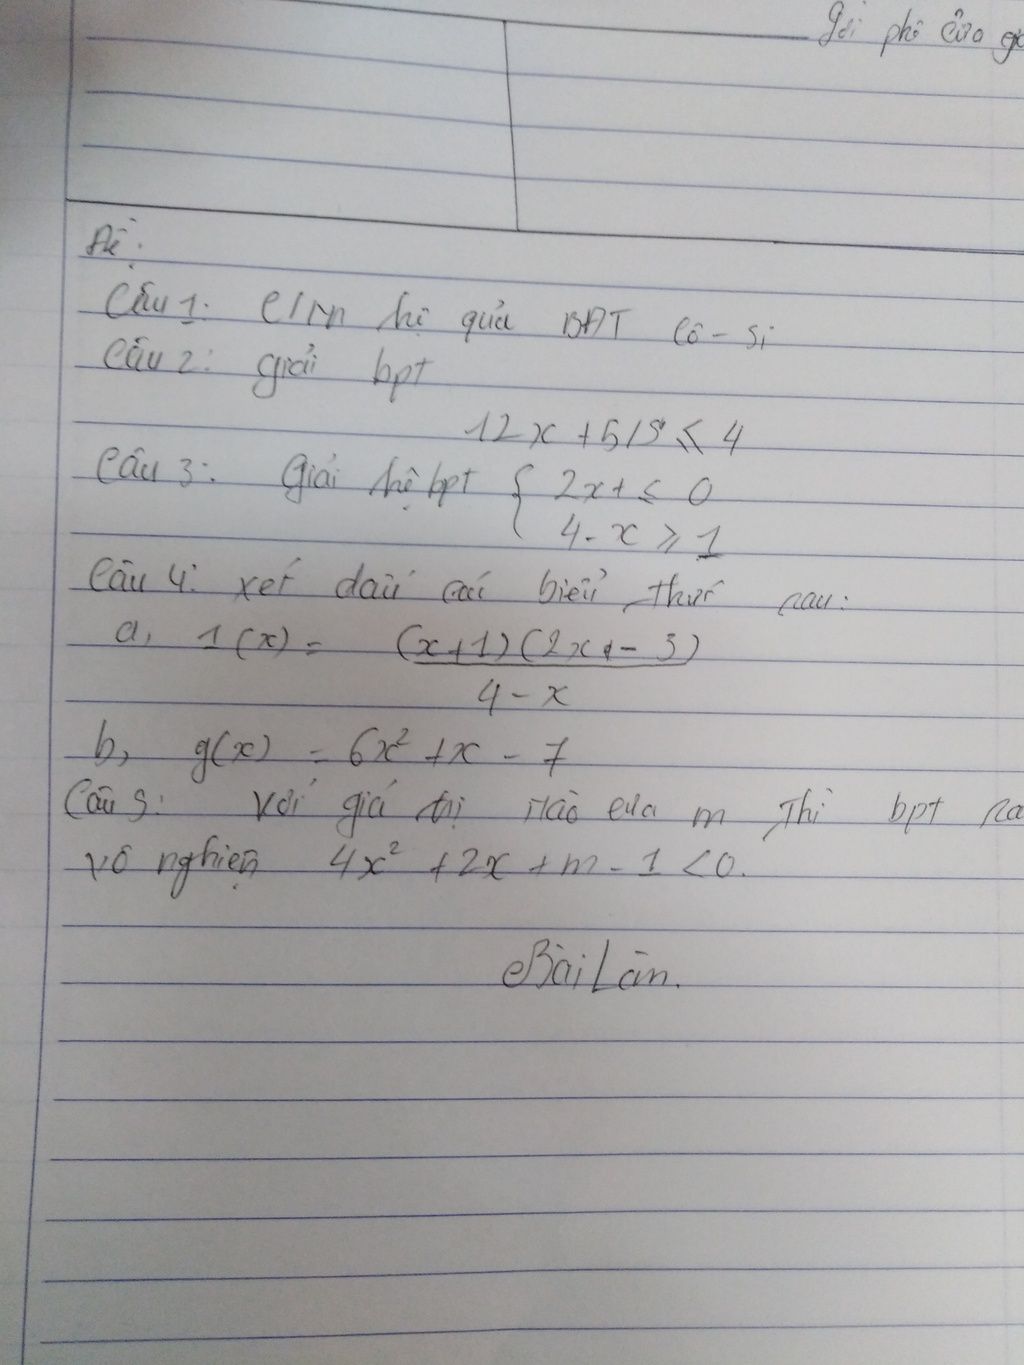 Đề:
Câu 1: C/m hệ quả BĐT Cô-si
Câu 2: giải bpt
12x + 5/5 ≤ 4
Câu 3: Giải hệ bpt { 2x + ≤ 0
4 - x ≥ 1
Câu 4: xét dấu các biểu thức sau:
a, 1(x) = (x+1)(2x - 3)
4 - x
b, g(x) = 6x² + x - 7
Câu 5: Với giá trị nào của m thì bpt
vô nghiệm 4x² + 2x + m - 1 < 0.
Bài Làm.